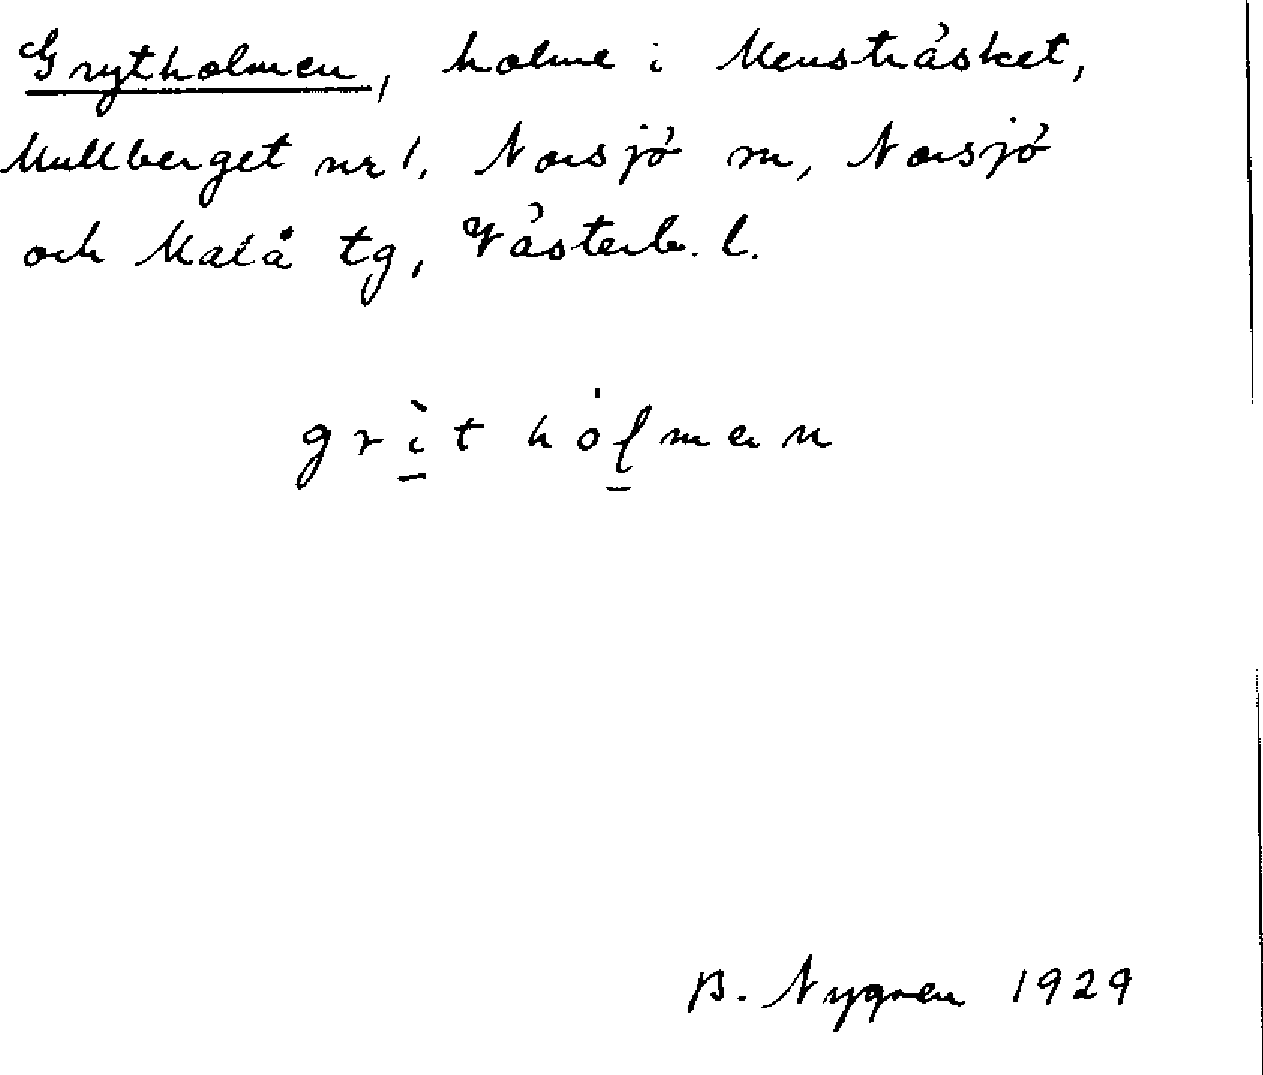 Grytholmen, holme i Mensträsket,
Mullberget nr 1, Norsjö sn, Norsjö
och Malå tg, Västerb. l.
grìt hólmen
B. Nygren 1929